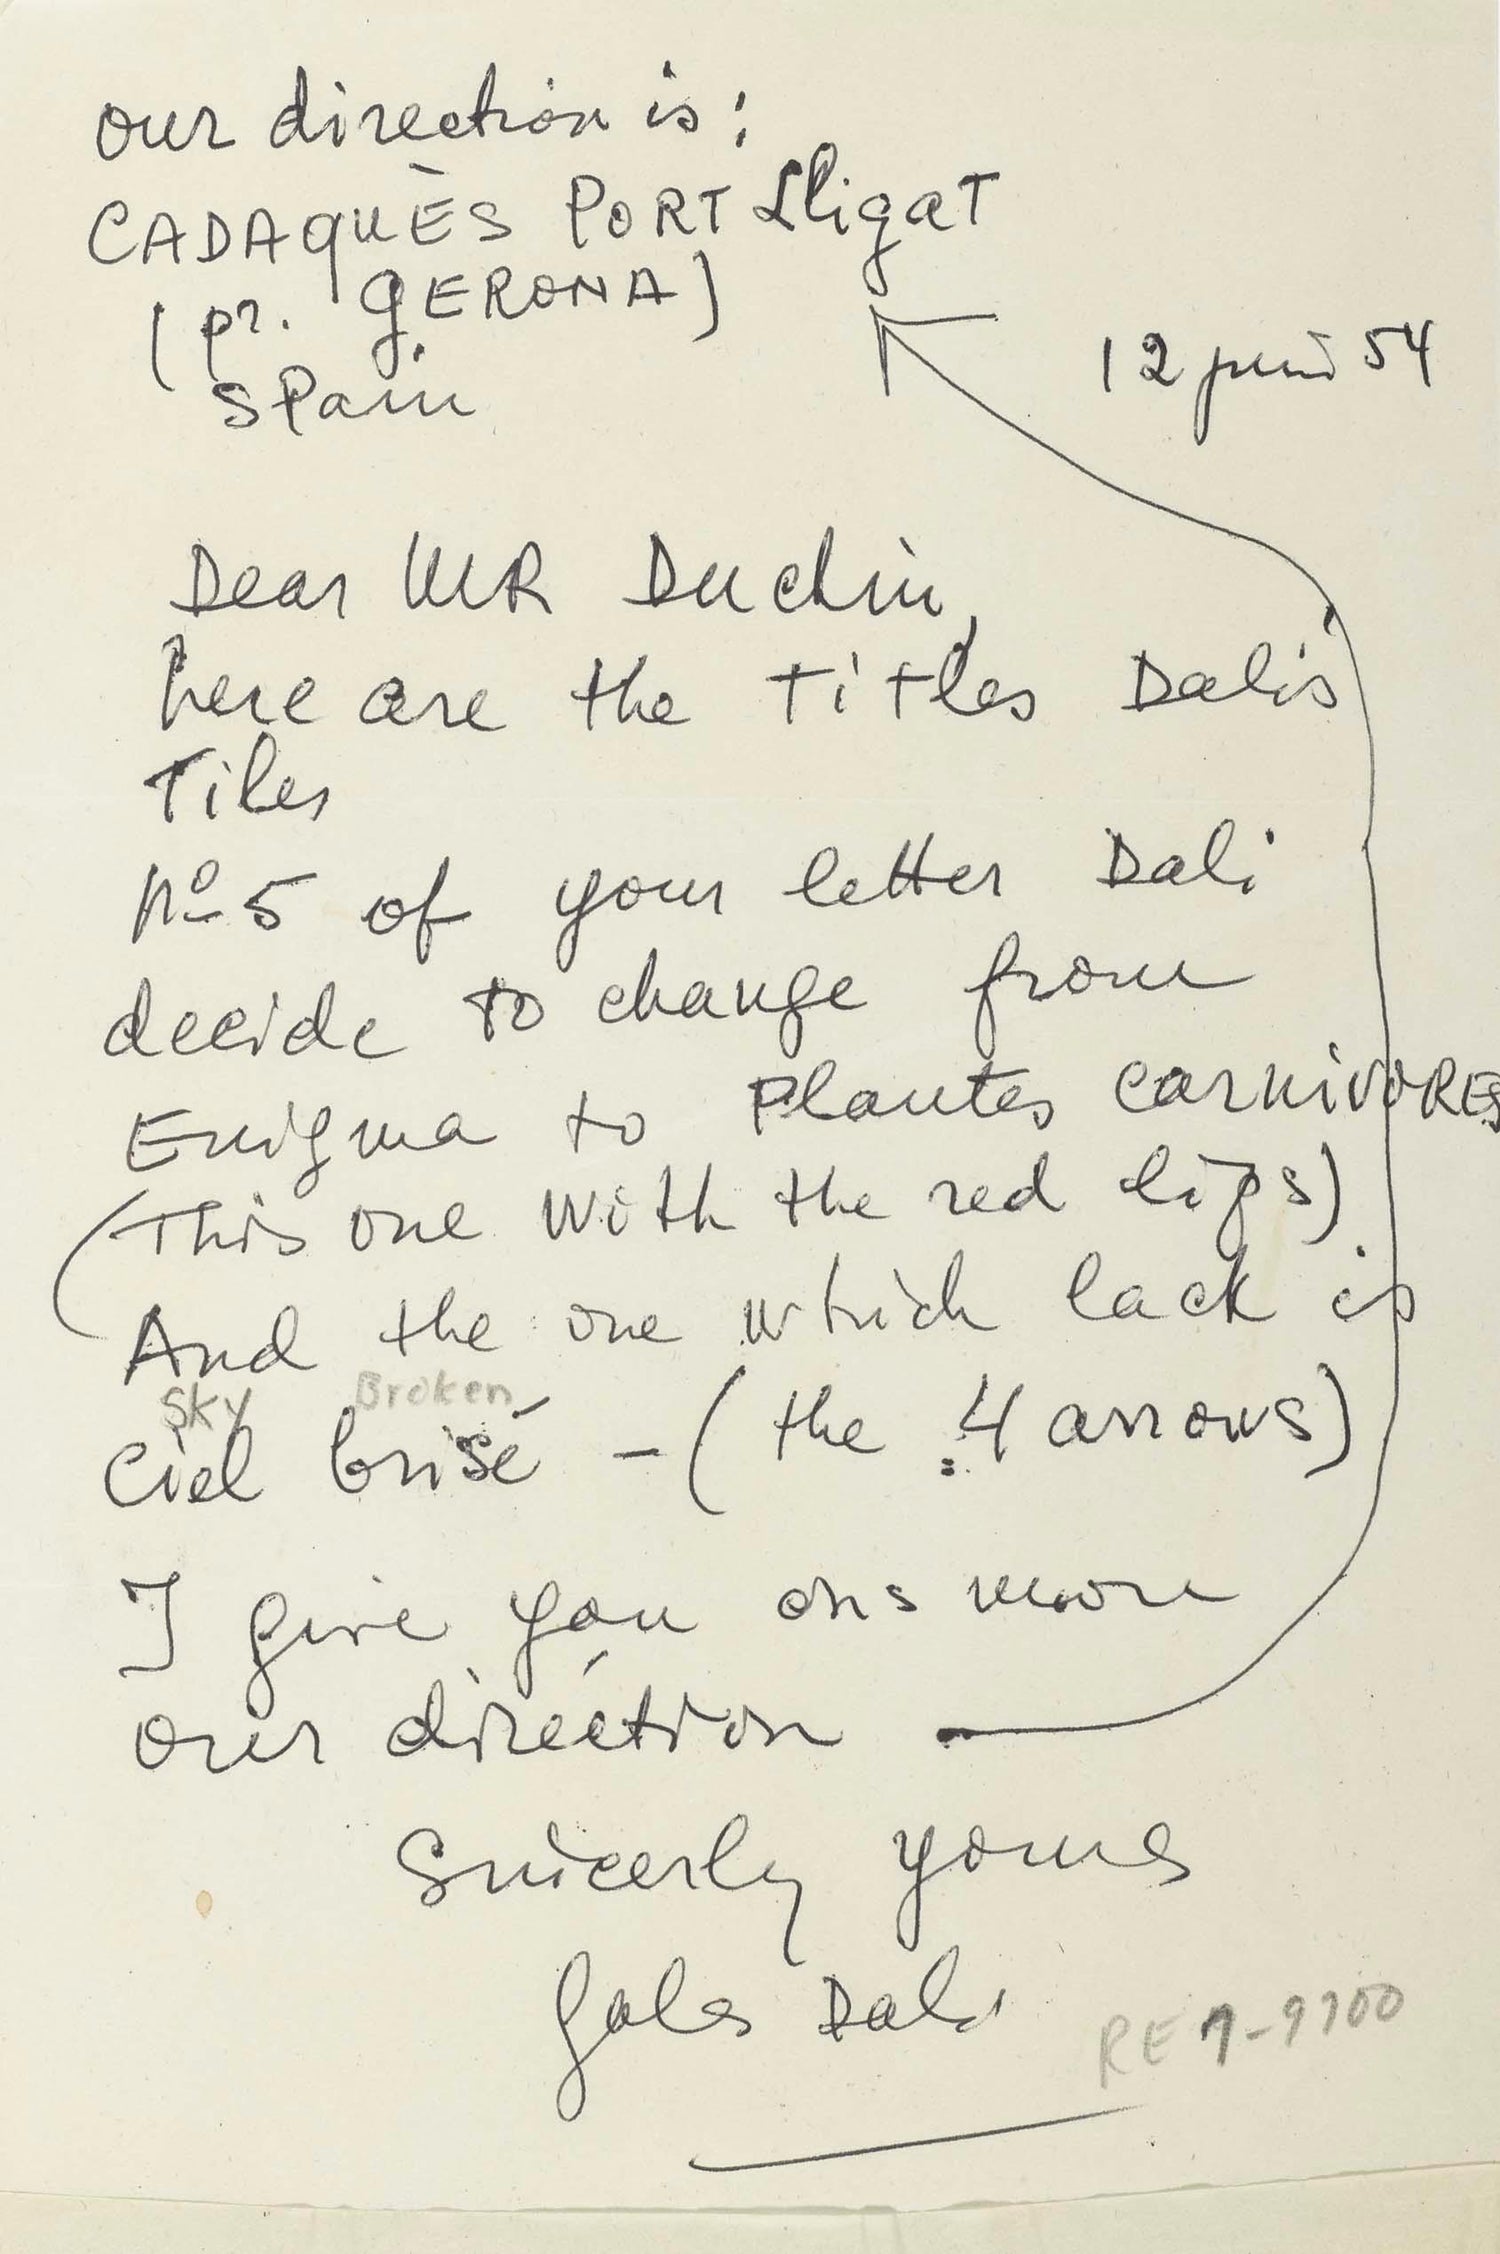 our direction is:
CADAQUÈS PORT Lligat
(pr. GERONA)
Spain
12 juni 54
Dear MR Duchin,
here are the Titles Dali's
Tiles
Nº 5 of your letter Dali
decide to change from
Enigma to Plantes carnivORES
(This one with the red lips)
And the one which lack is
Sky Broken
Ciel brisé - (the 4 arrows)
I give you ons more
our diréction
Sincerly yours
Gala Dali
RE 7-9700